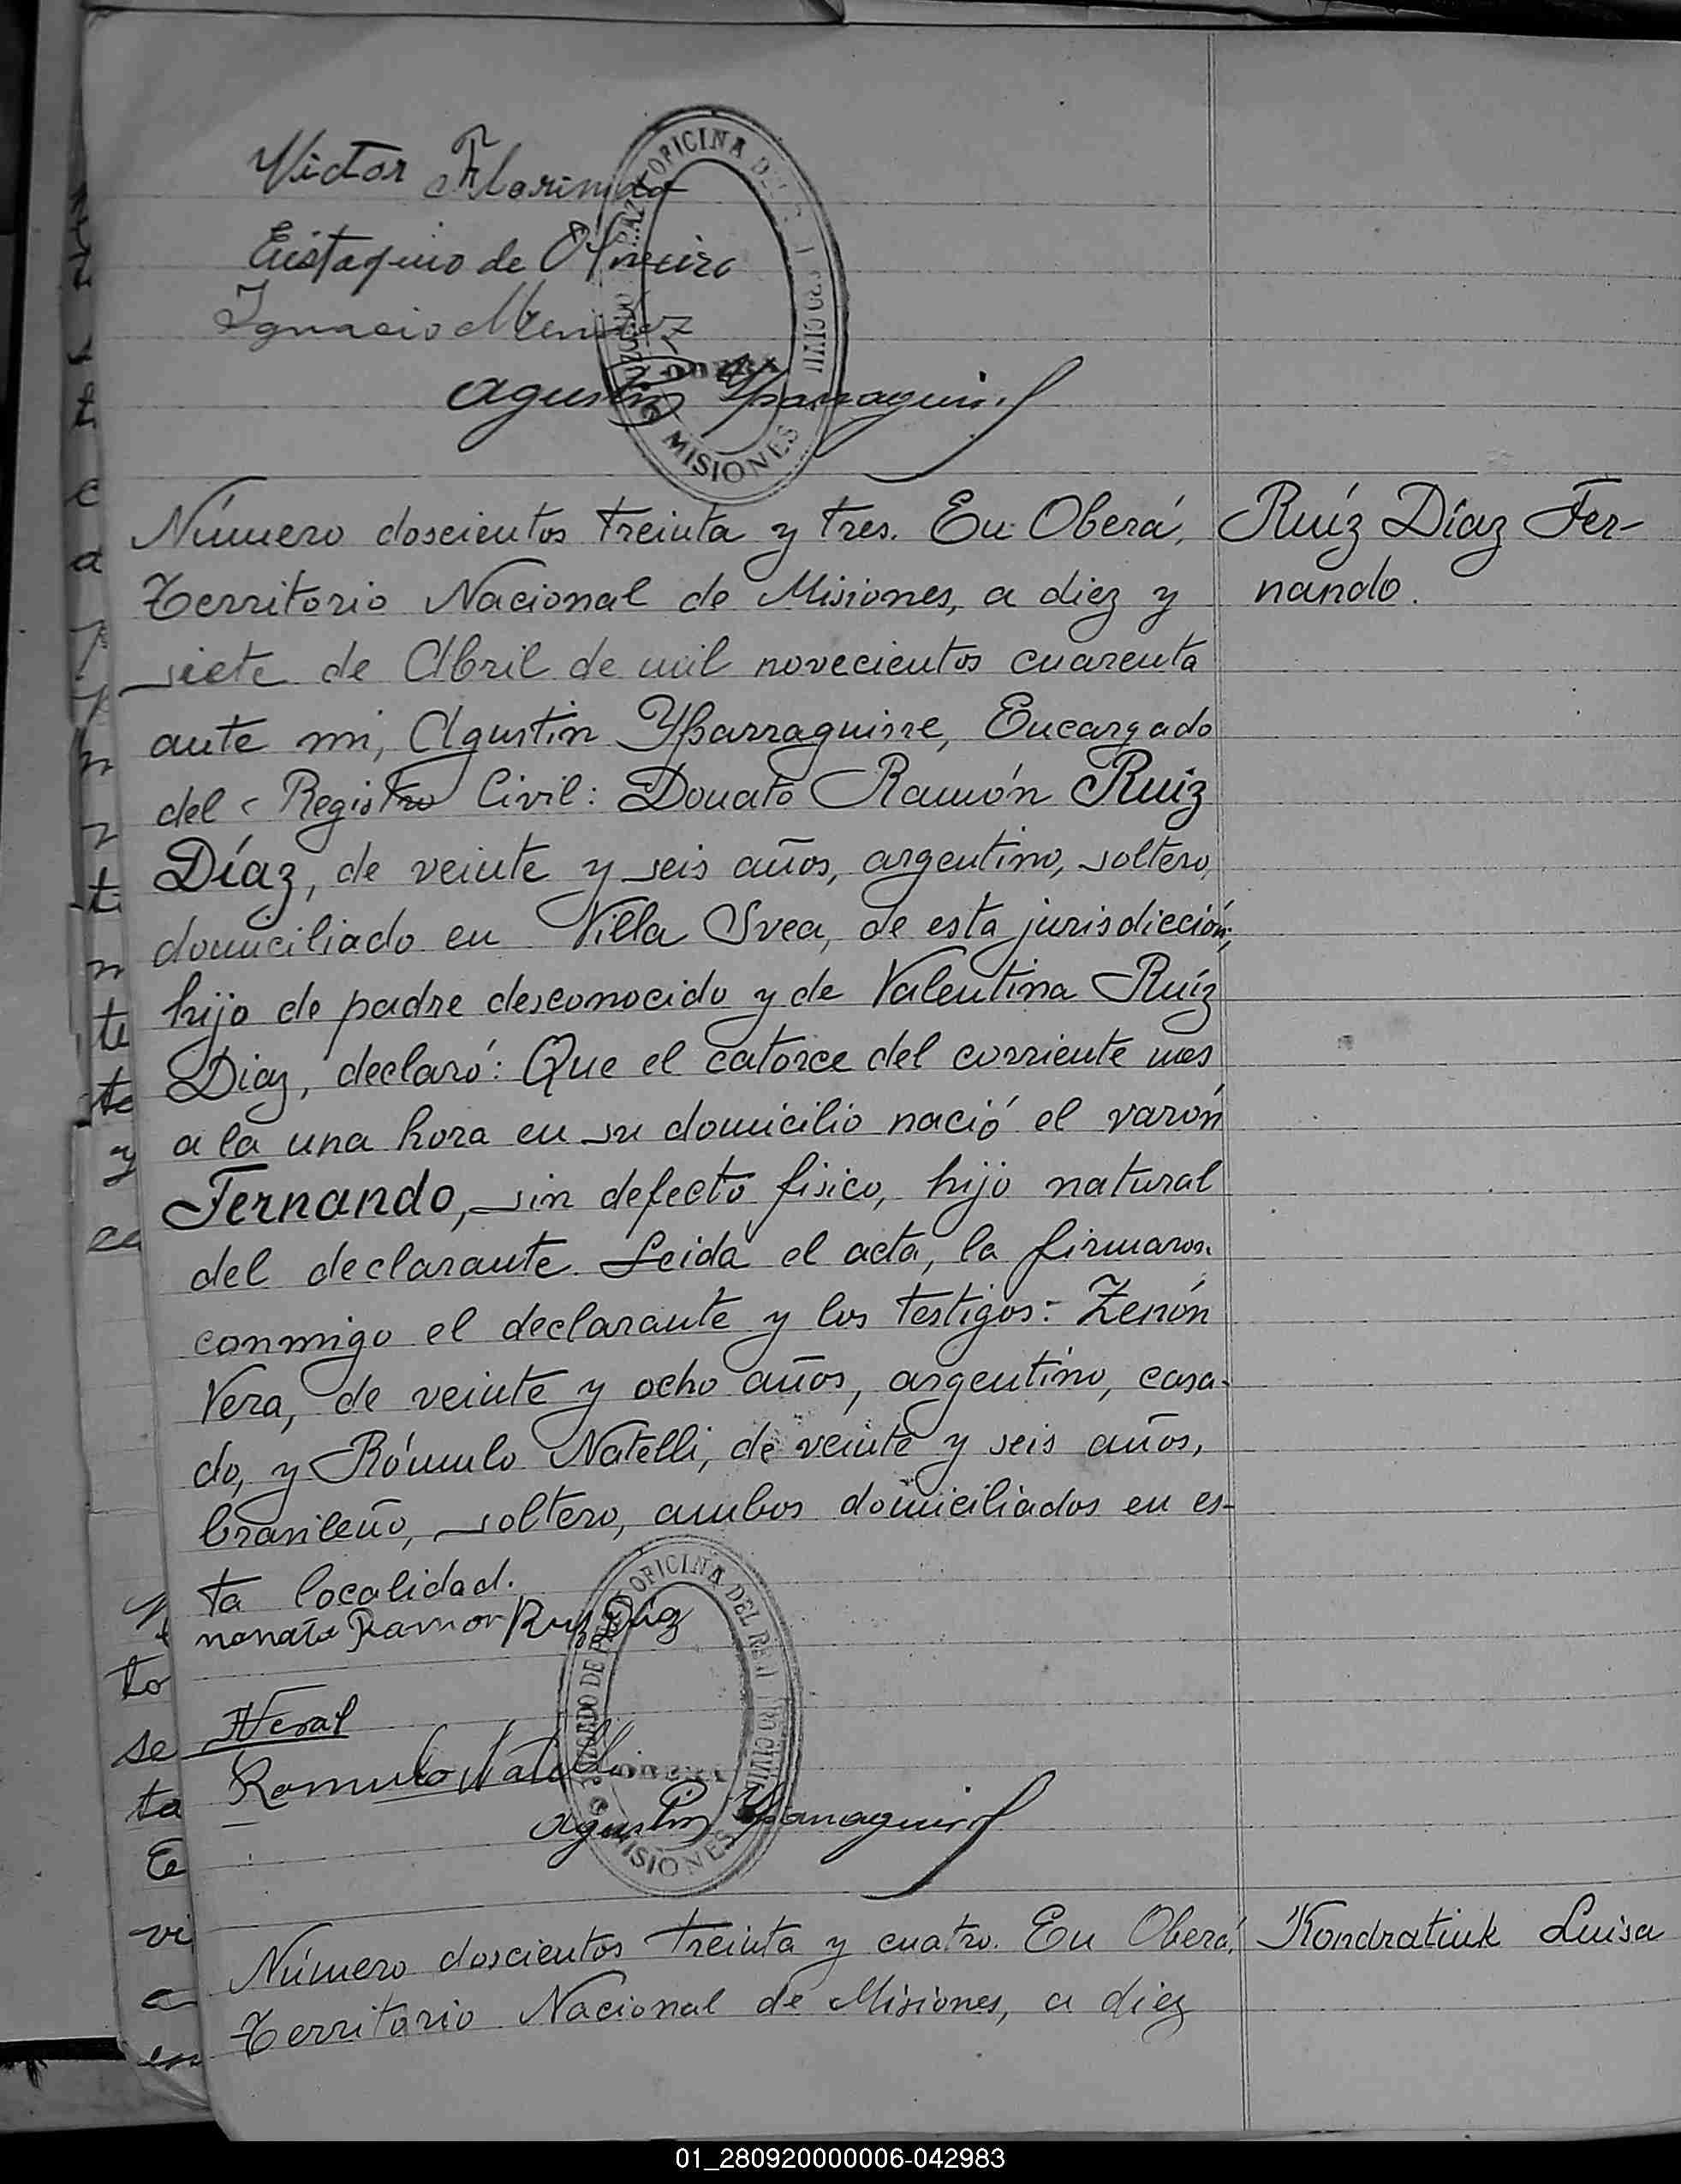 Victor Florindo
Eustaquio de Oliveira
Ignacio Mendez
OFICINA DEL REGISTRO CIVIL
JUZGADO DE PAZ
OBERA
MISIONES
Agustin Ybarraguirre
Número doscientos treinta y tres. En Oberá, Ruíz Díaz Fer-
Territorio Nacional de Misiones, a diez y nando.
siete de Abril de mil novecientos cuarenta
ante mi, Agustin Ybarraguirre, Encargado
del Registro Civil: Donato Ramón Ruiz
Díaz, de veinte y seis años, argentino, soltero,
domiciliado en Villa Svea, de esta jurisdicción,
hijo de padre desconocido y de Valentina Ruíz
Diaz, declaró: Que el catorce del corriente mes
a la una hora en su domicilio nació el varón
Fernando, sin defecto fisico, hijo natural
del declarante. Leida el acta, la firmaron
conmigo el declarante y los testigos: Zenón
Vera, de veinte y ocho años, argentino, casa-
do, y Rómulo Natelli, de veinte y seis años,
brasileño, soltero, ambos domiciliados en es-
ta localidad.
nonato Ramon Ruis Diaz
OFICINA DEL REGISTRO CIVIL
JUZGADO DE PAZ
OBERA
MISIONES
Romulo Natelli
Agustin Ybarraguirre
Número doscientos treinta y cuatro. En Oberá, Kondratiuk Luisa
Territorio Nacional de Misiones, a diez
01_280920000006-042983